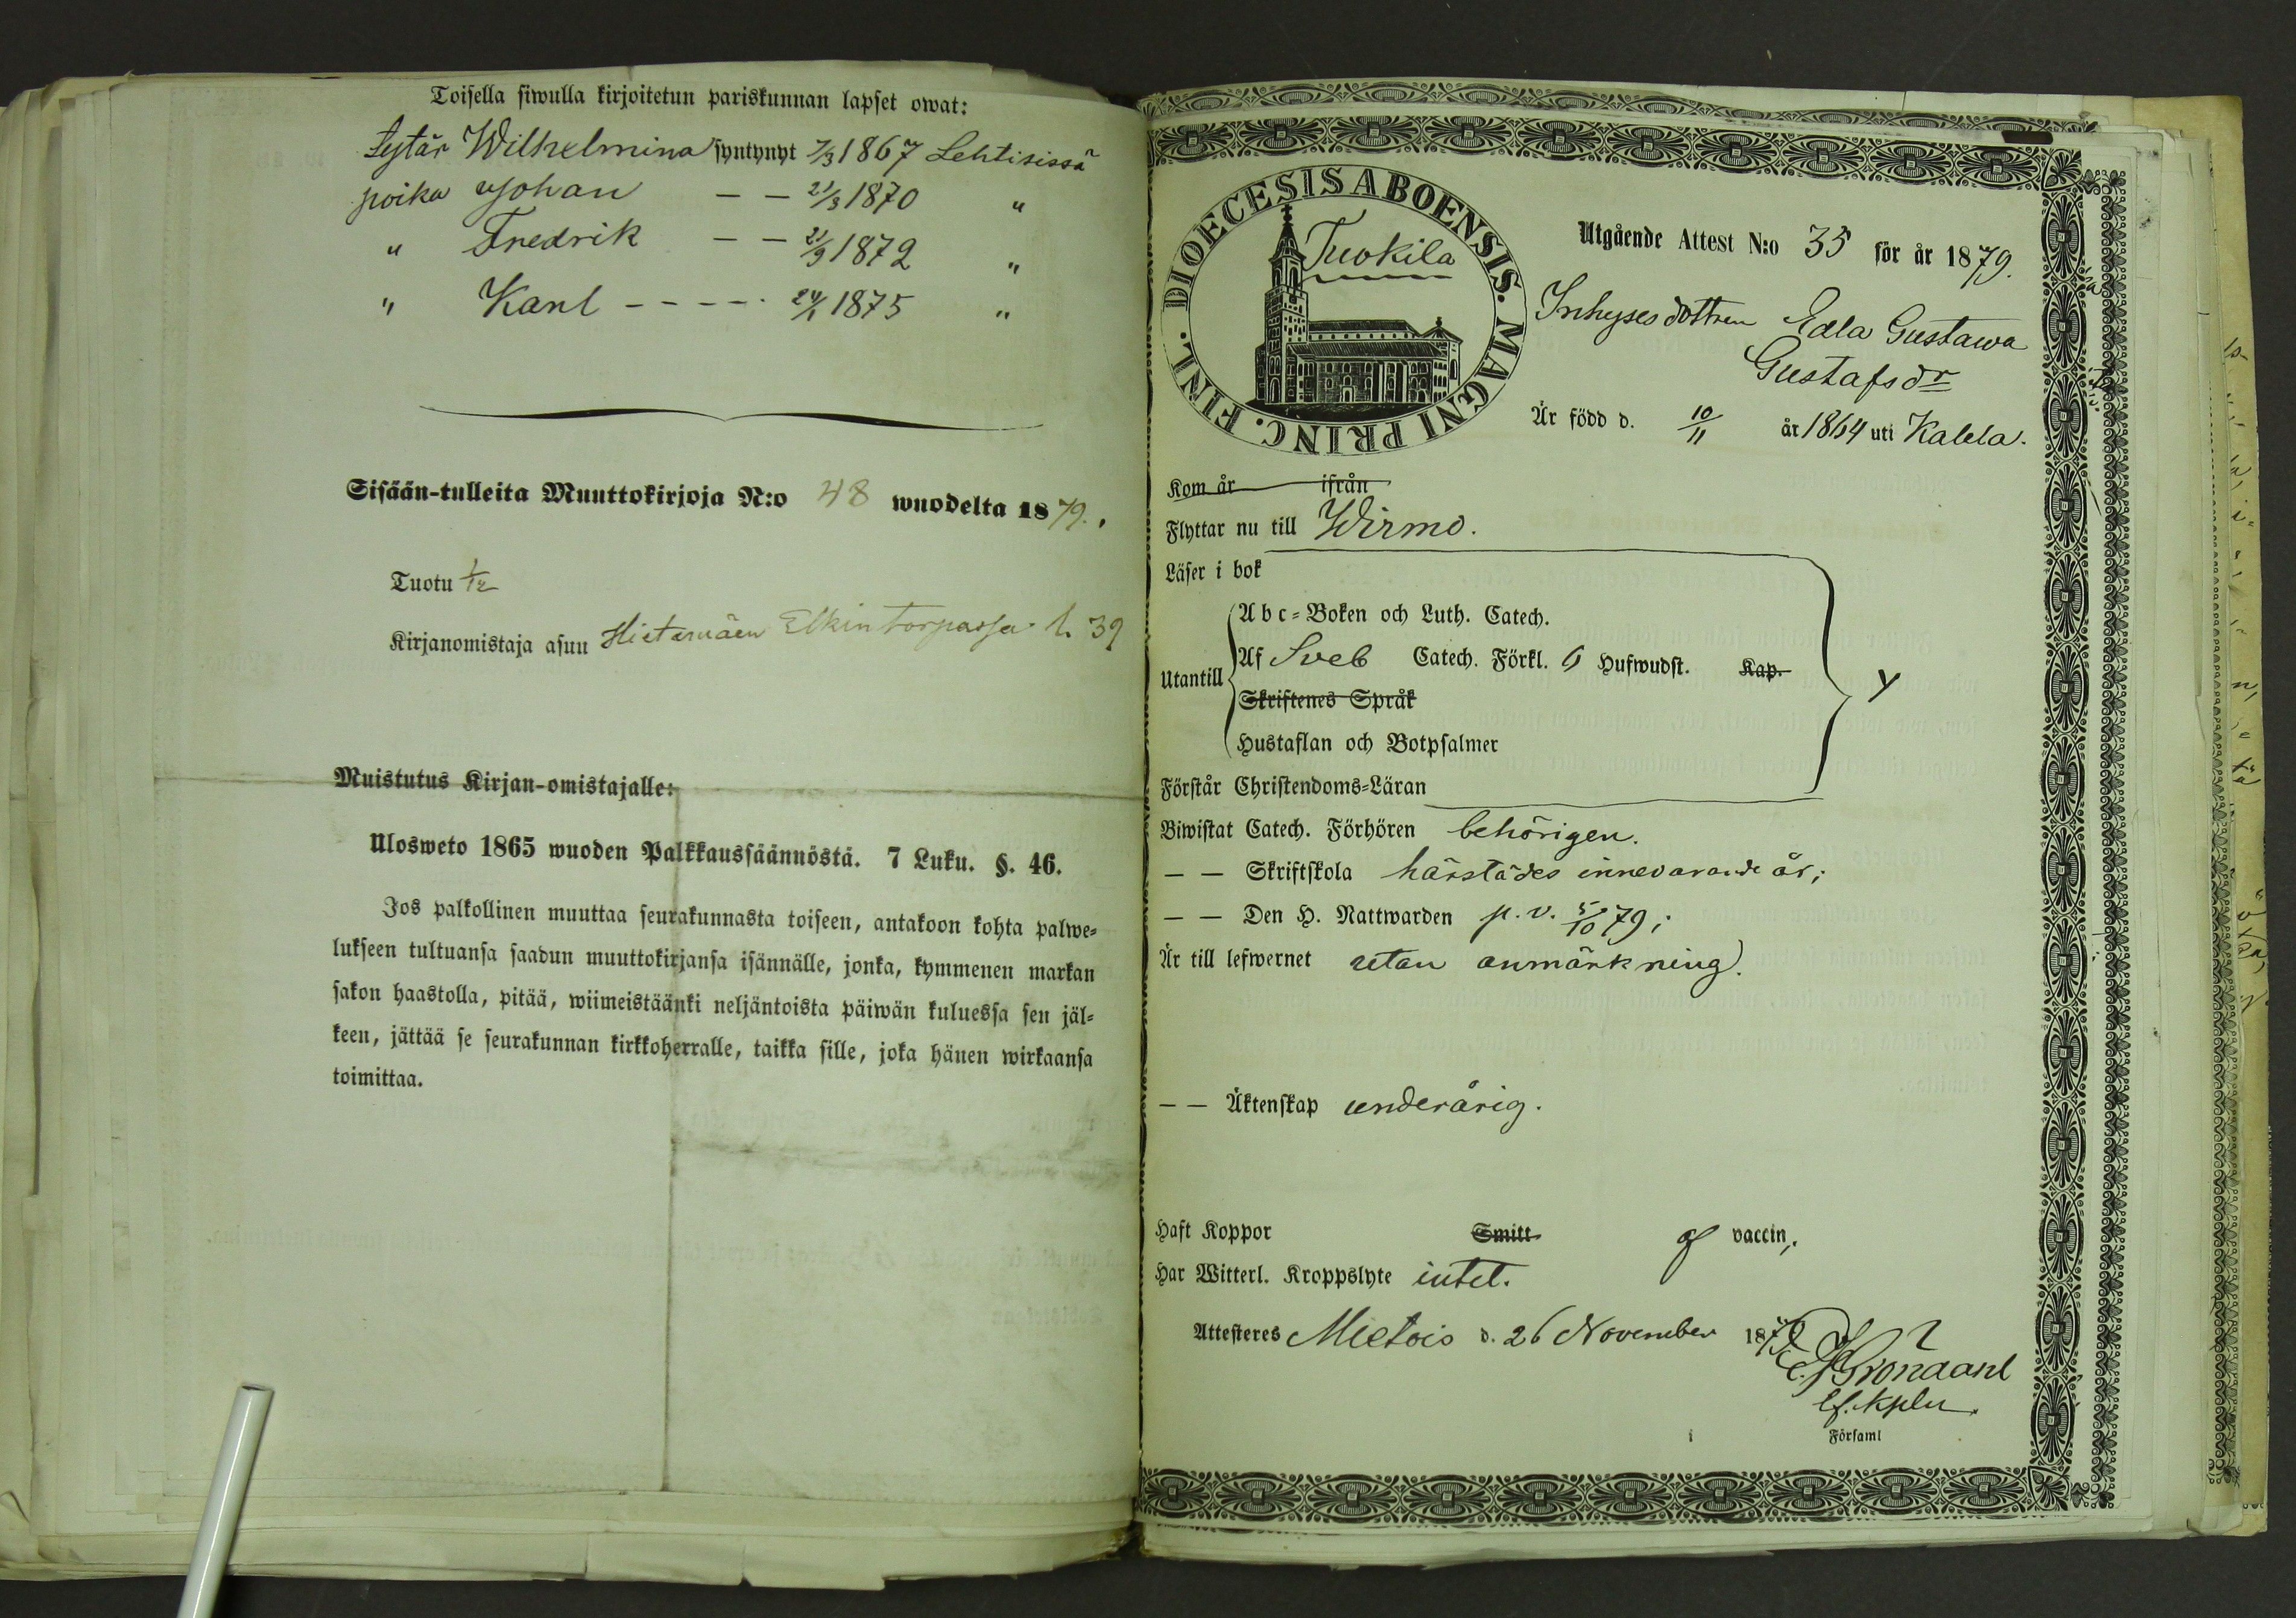 Toisella siwulla kirjoitetun pariskunnan lapset owat:
tytär Wilhelmina syntynyt 7/3 1867 Lehtisissä
poika Johan — — 21/3 1870 "
" Fredrik — — 21/9 1872 "
" Karl - - - - 24/1 1875 "
Sisään-tulleita Muuttokirjoja N:o 48 wuodelta 1879.
Tuotu 1/12
Kirjanomistaja asuu Hietamäen torpassa 39
Muistutus Kirjan-omistajalle:
Ulosweto 1865 wuoden Palkkaussäännöstä. 7 Luku. §. 46.
Jos palkollinen muuttaa seurakunnasta toiseen, antakoon kohta palwe-
lukseen tultuansa saadun muuttokirjansa isännälle, jonka, kymmenen markan
sakon haastolla, pitää, wiimeistäänki neljäntoista päiwän kuluessa sen jäl-
keen, jättää se seurakunnan kirkkoherralle, taikka sille, joka hänen wirkaansa
toimittaa.
DIOECESIS ABOENSIS. MAGNI PRINC. FINL.
Tuokila
Utgående Attest N:o 35 för år 1879.
Inhyses dottren Edla Gustawa
Gustafsdr
Är född d. 10/11 år 1864 uti Kalela.
Kom år ifrån
Flyttar nu till Wirmo.
Läser i bok
Utantill
Abc-Boken och Luth. Catech.
Af Sveb Catech. Förkl. 6 Hufwudst. Kap.
Skriftenes Språk
Hustaflan och Botpsalmer
Y
Förstår Christendoms-Läran
Biwistat Catech. Förhören behörigen.
— — Skriftskola härstädes innevarande år;
— — Den H. Nattwarden p. v. 5/10 79;
Är till lefwernet utan anmärkning.
— — Äktenskap underårig.
Haft Koppor Smitt af vaccin,
Har Witterl. Kroppslyte intet.
Attesteres Mietois d. 26 November 1879
i Församl